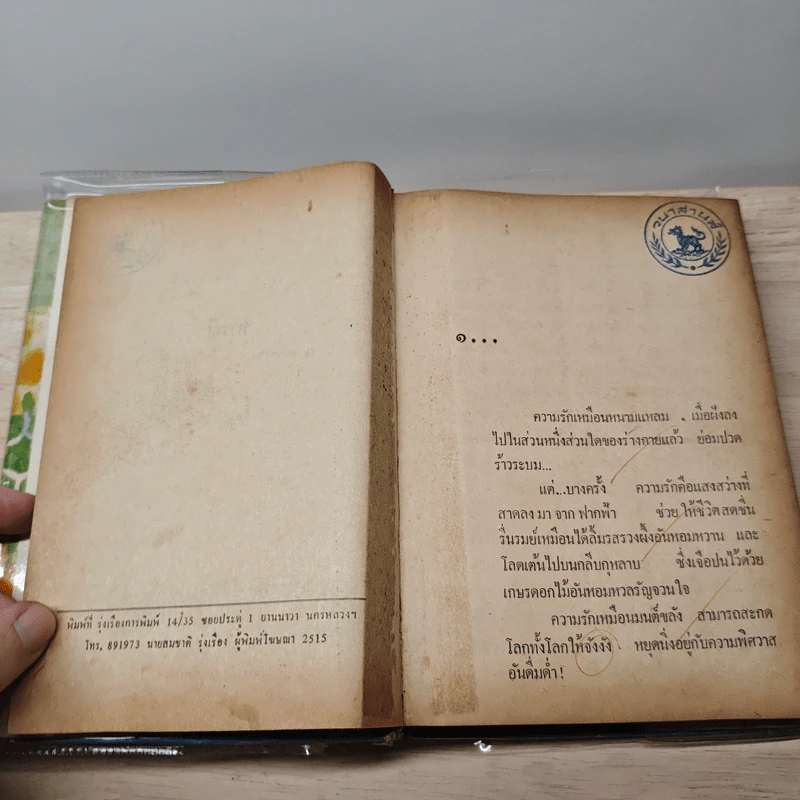 พิมพ์ที่ รุ่งเรืองการพิมพ์ 14/35 ซอยประดู่ 1 ยานนาวา นครหลวงฯ
โทร. 891973 นายสมชาติ รุ่งเรือง ผู้พิมพ์โฆษณา 2515
วนาสานส์
๑...
ความรักเหมือนหนามแหลม เมื่อฝังลง
ไปในส่วนหนึ่งส่วนใดของร่างกายแล้ว ย่อมปวด
ร้าวระบม...
แต่...บางครั้ง ความรักคือแสงสว่างที่
สาดลง มา จาก ฟากฟ้า ช่วย ให้ชีวิต สดชื่น
รื่นรมย์เหมือนได้ลิ้มรสรวงผึ้งอันหอมหวาน และ
โลดเต้นไปบนกลีบกุหลาบ ซึ่งเจือปนไว้ด้วย
เกษรดอกไม้อันหอมหวลรัญจวนใจ
ความรักเหมือนมนต์ขลัง สามารถสะกด
โลกทั้งโลกให้จังงัง หยุดนิ่งอยู่กับความพิศวาส
อันดื่มด่ำ!